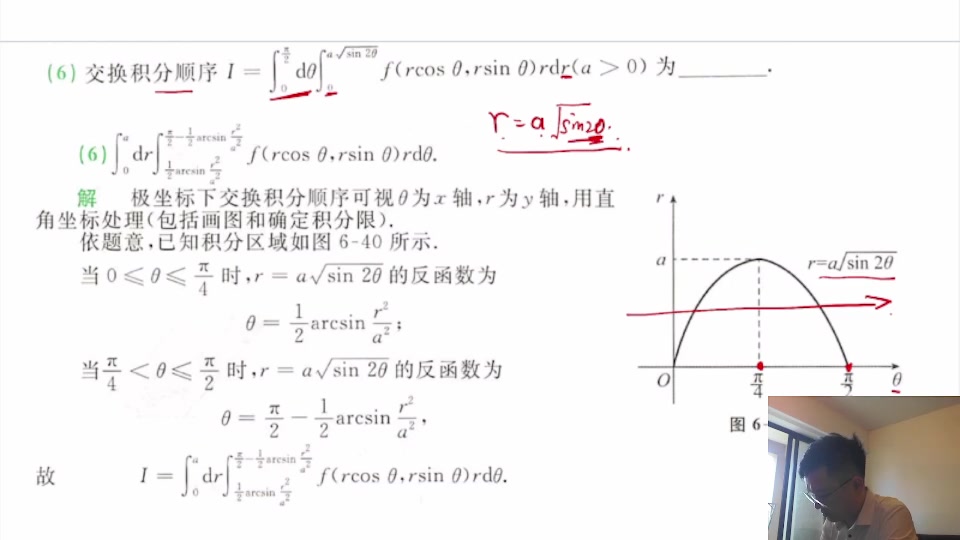 (6) 交换积分顺序 I = ∫₀^{π/2} dθ ∫₀^{a√sin 2θ} f(rcos θ,rsin θ)rdr(a > 0) 为______.
r = a√sin2θ.
(6) ∫₀^a dr ∫_{½arcsin r²/a²}^{π/2−½arcsin r²/a²} f(rcos θ,rsin θ)rdθ.
解 极坐标下交换积分顺序可视θ为x轴,r为y轴,用直
角坐标处理(包括画图和确定积分限).
依题意,已知积分区域如图 6-40 所示.
当 0 ≤ θ ≤ π/4 时,r = a√sin 2θ 的反函数为
θ = 1/2 arcsin r²/a²;
当 π/4 < θ ≤ π/2 时,r = a√sin 2θ 的反函数为
θ = π/2 − 1/2 arcsin r²/a²,
故 I = ∫₀^a dr ∫_{½arcsin r²/a²}^{π/2−½arcsin r²/a²} f(rcos θ,rsin θ)rdθ.
r
a
r=a√sin 2θ
O π/4 π/2 θ
图 6-